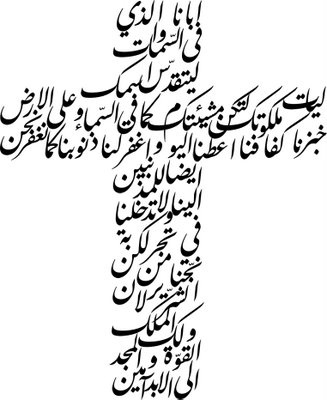 ابانا الذي
في السّموات
ليتقدّس اسمك
ليات ملكوتك لتكن مشيئتك كما في السّماء وعلى الارض
خبزنا كفافنا اعطنا اليوم واغفر لنا ذنوبنا كما نغفر نحن
ايضا للمذنبين
الينا ولا تدخلنا
في تجربة لكن
نجّنا من
الشّرير لان
لك الملك
والقوّة والمجد
الى الابد آمين